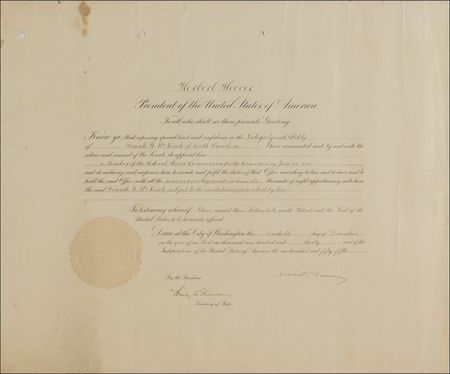 Herbert Hoover
President of the United States of America.
To all who shall see these presents, Greeting:
Know ye, that reposing special trust and confidence in the Integrity and Ability
of Frank R. McNinch of North Carolina I have nominated, and, by and with the
advice and consent of the Senate, do appoint him
a Member of the Federal Power Commission for the term expiring June
and do authorize and empower him to execute and fulfil the duties of that Office according to law, and to have and to
hold the said Office, with all the powers, privileges, and emoluments thereunto of right appertaining, unto him
the said Frank R. McNinch, subject to the conditions prescribed by law.
In testimony whereof, I have caused these Letters to be made Patent, and the Seal of the
United States to be hereunto affixed.
Done at the City of Washington this day of December
in the year of our Lord one thousand nine hundred and thirty and of the
Independence of the United States of America the one hundred and fifty-fifth.
By the President:
Henry L. Stimson
Secretary of State.